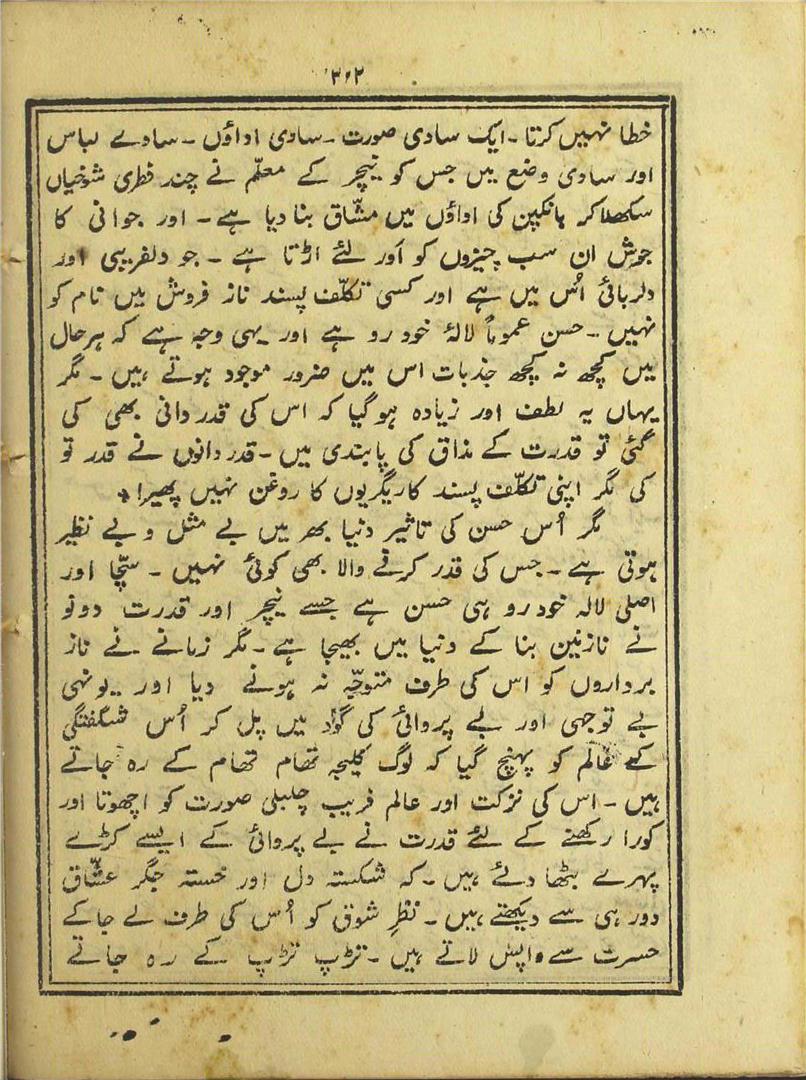 ۳۶۲
خطا نہیں کرتا ۔ ایک سادی صورت ۔ سادی اداؤں ۔ سادے لباس
اور سادی وضع میں جس کو نیچر کے معلّم نے چند فطری شوخیاں
سکھلا کر بانکپن کی اداؤں میں مشّاق بنا دیا ہے ۔ اور جوانی کا
جوش ان سب چیزوں کو اَور لئے اڑتا ہے ۔ جو دلفریبی اور
دلربائی اُس میں ہے اور کسی تکلّف پسند ناز فروش میں نام کو
نہیں ۔ حسن عموماً لالۂ خود رو ہے اور یہی وجہ ہے کہ ہر حال
میں کچھ نہ کچھ جذبات اس میں ضرور موجود ہوتے ہیں ۔ مگر
یہاں یہ لطف اور زیادہ ہو گیا کہ اس کی قدردانی بھی کی
گئی تو قدرت کے مذاق کی پابندی میں ۔ قدردانوں نے قدر تو
کی مگر اپنی تکلّف پسند کاریگریوں کا روغن نہیں پھیرا +
مگر اُس حسن کی تاثیر دنیا بھر میں بے مثل و بے نظیر
ہوتی ہے ۔ جس کی قدر کرنے والا بھی کوئی نہیں ۔ سچّا اور
اصلی لالہ خود رو ہی حسن ہے جسے نیچر اور قدرت دونو
نے نازنین بنا کے دنیا میں بھیجا ہے ۔ مگر زمانے نے ناز
برداروں کو اس کی طرف متوجّہ نہ ہونے دیا اور یونہی
بے توجہی اور بے پروائی کی گود میں پل کر اُس شگفتگی
کے عالم کو پہنچ گیا کہ لوگ کلیجہ تھام تھام کے رہ جاتے
ہیں ۔ اس کی نزکت اور عالم فریب چلبلی صورت کو اچھوتا اور
کورا رکھنے کے لئے قدرت نے بے پروائی کے ایسے کڑے
پہرے بٹھا دئے ہیں ۔ کہ شکستہ دل اور خستہ جگر عشّاق
دور ہی سے دیکھتے ہیں ۔ نظرِ شوق کو اُس کی طرف لے جا کے
حسرت سے واپس لاتے ہیں ۔ تڑپ تڑپ کے رہ جاتے